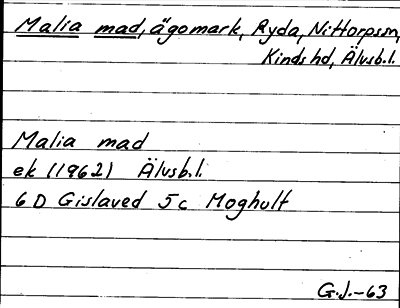 Malia mad, ägomark, Ryda, Nittorpssn,
Kinds hd, Älvsb.l.
Malia mad
ek (1962) Älvsb.l.
6D Gislaved 5c Moghult
G.J.-63